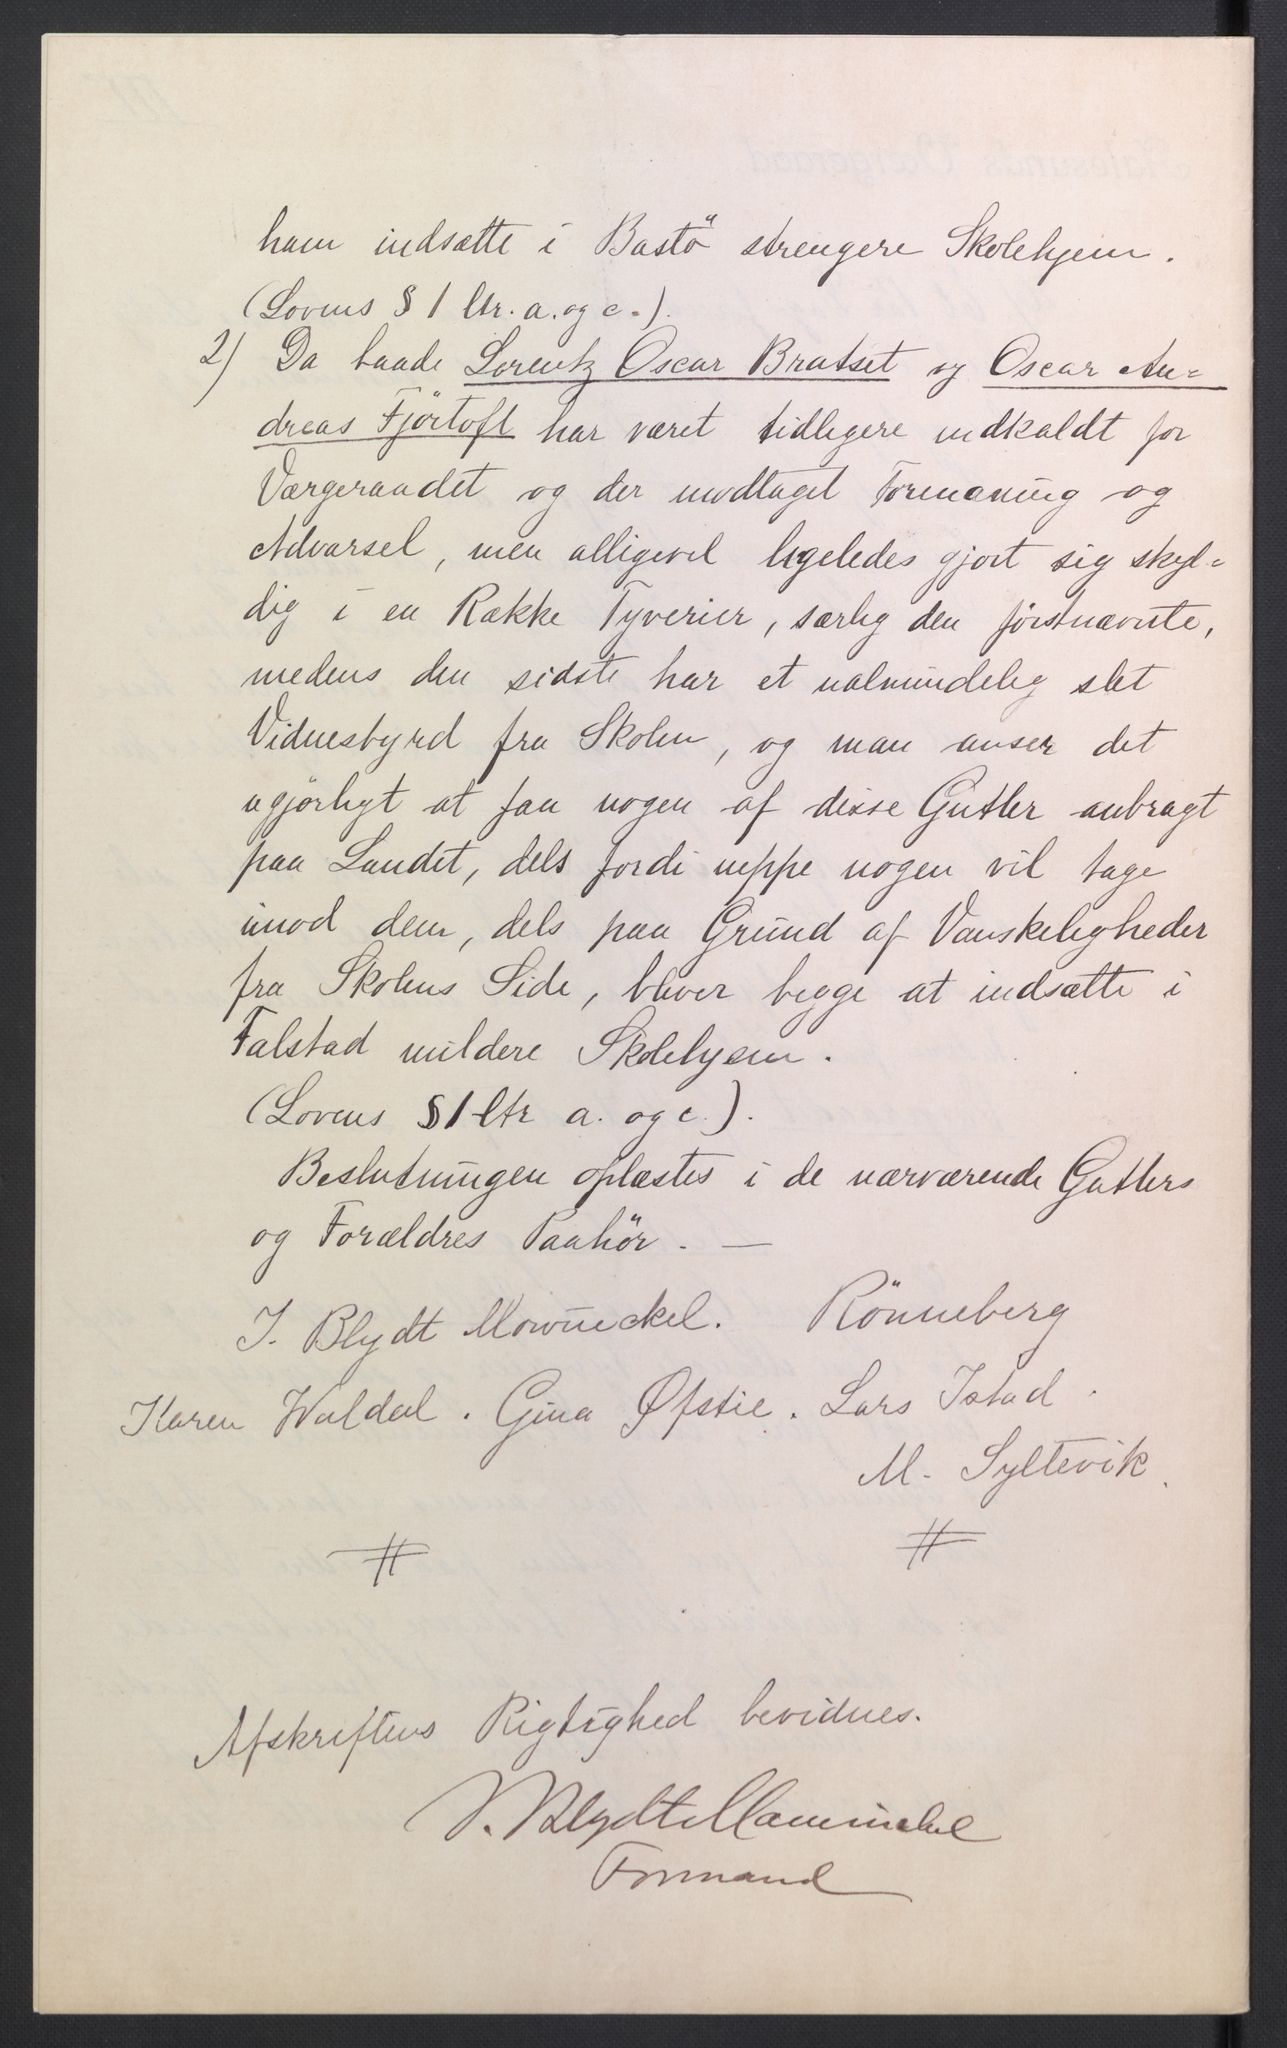 ham indsætte i Bastö strengere Skolehjem.
(Lovens § 1 ltr. a. og c.).
2) Da baade Lorentz Oscar Bratset og Oscar An=
dreas Fjörtoft har været tidligere indkaldt for
Værgeraadet og der modtaget Formaning og
Advarsel, men alligevel ligeledes gjort sig skyl=
dig i en Række Tyverier, særlig den förstnævnte,
medens den sidste har et ualmindelig slet
Vidnesbyrd fra Skolen, og man anser det
ugjörligt at faa nogen af disse Gutter anbragt
paa Landet, dels fordi neppe nogen vil tage
imod dem, dels paa Grund af Vanskeligheder
fra Skolens Side, bliver begge at indsætte i
Falstad mildere Skolehjem.
(Lovens § 1 ltr a. og c.).
Beslutningen oplæstes i de nærværende Gutters
og Forældres Paahör. —
J. Blydt Mowinckel. Rönneberg
Karen Waldal. Gina Øfstie. Lars Istad.
M. Syltevik.
#	#
Afskriftens Rigtighed bevidnes.
J. Blydt Mowinckel
Formand